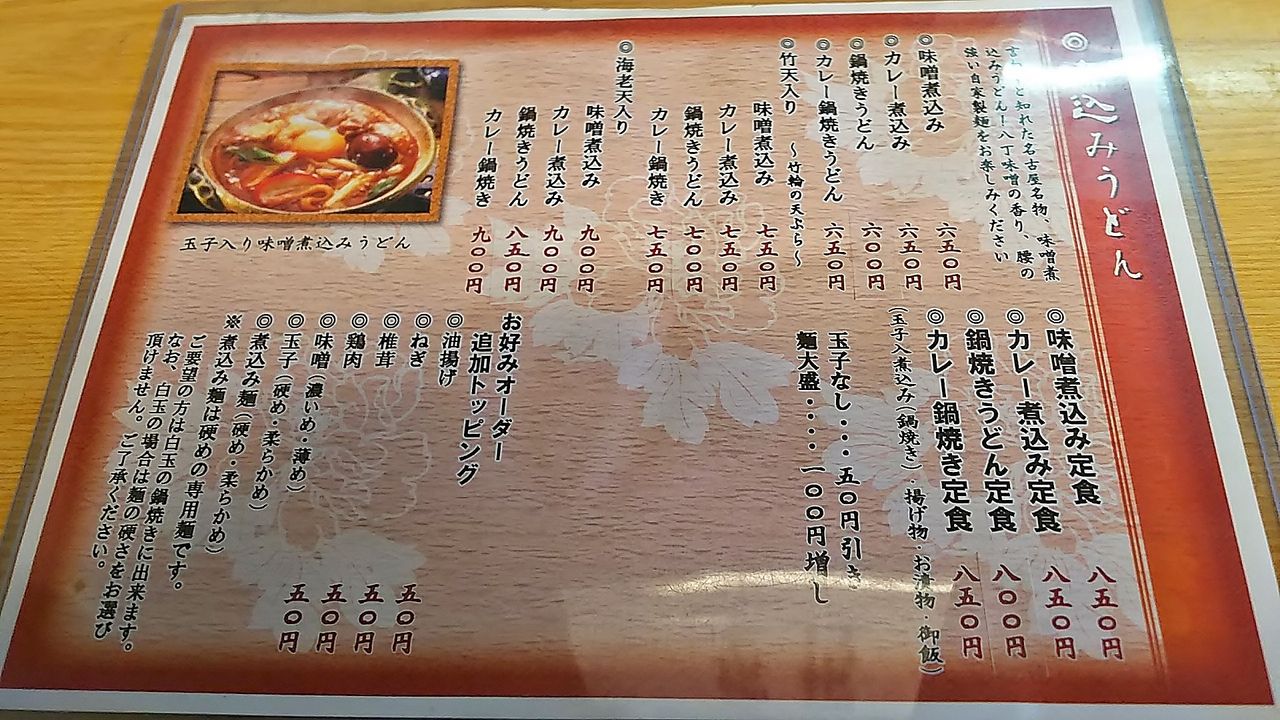 ◎
込みうどん
と知れた名古屋名物、味噌煮
込みうどん!八丁味噌の香り、腰の
強い自家製麺をお楽しみください
◎味噌煮込み 六五〇円
◎カレー煮込み 六五〇円
◎鍋焼きうどん 六〇〇円
◎カレー鍋焼きうどん 六五〇円
◎竹天入り ～竹輪の天ぷら～
味噌煮込み 七五〇円
カレー煮込み 七五〇円
鍋焼きうどん 七〇〇円
カレー鍋焼き 七五〇円
◎海老天入り
味噌煮込み 九〇〇円
カレー煮込み 九〇〇円
鍋焼きうどん 八五〇円
カレー鍋焼き 九〇〇円
玉子入り味噌煮込みうどん
◎味噌煮込み定食 八五〇円
◎カレー煮込み定食 八五〇円
◎鍋焼きうどん定食 八〇〇円
◎カレー鍋焼き定食 八五〇円
(玉子入煮込み(鍋焼き)・揚げ物・お漬物・御飯)
玉子なし・・・五〇円引き
麺大盛・・・・一〇〇円増し
お好みオーダー
追加トッピング
◎油揚げ 五〇円
◎ねぎ 五〇円
◎椎茸 五〇円
◎鶏肉 五〇円
◎味噌(濃いめ・薄め)
◎玉子(硬め・柔らかめ)
◎煮込み麺(硬め・柔らかめ)
※煮込み麺は硬めの専用麺です。
ご要望の方は白玉の鍋焼きに出来ます。
なお、白玉の場合は麺の硬さをお選び
頂けません。ご了承ください。